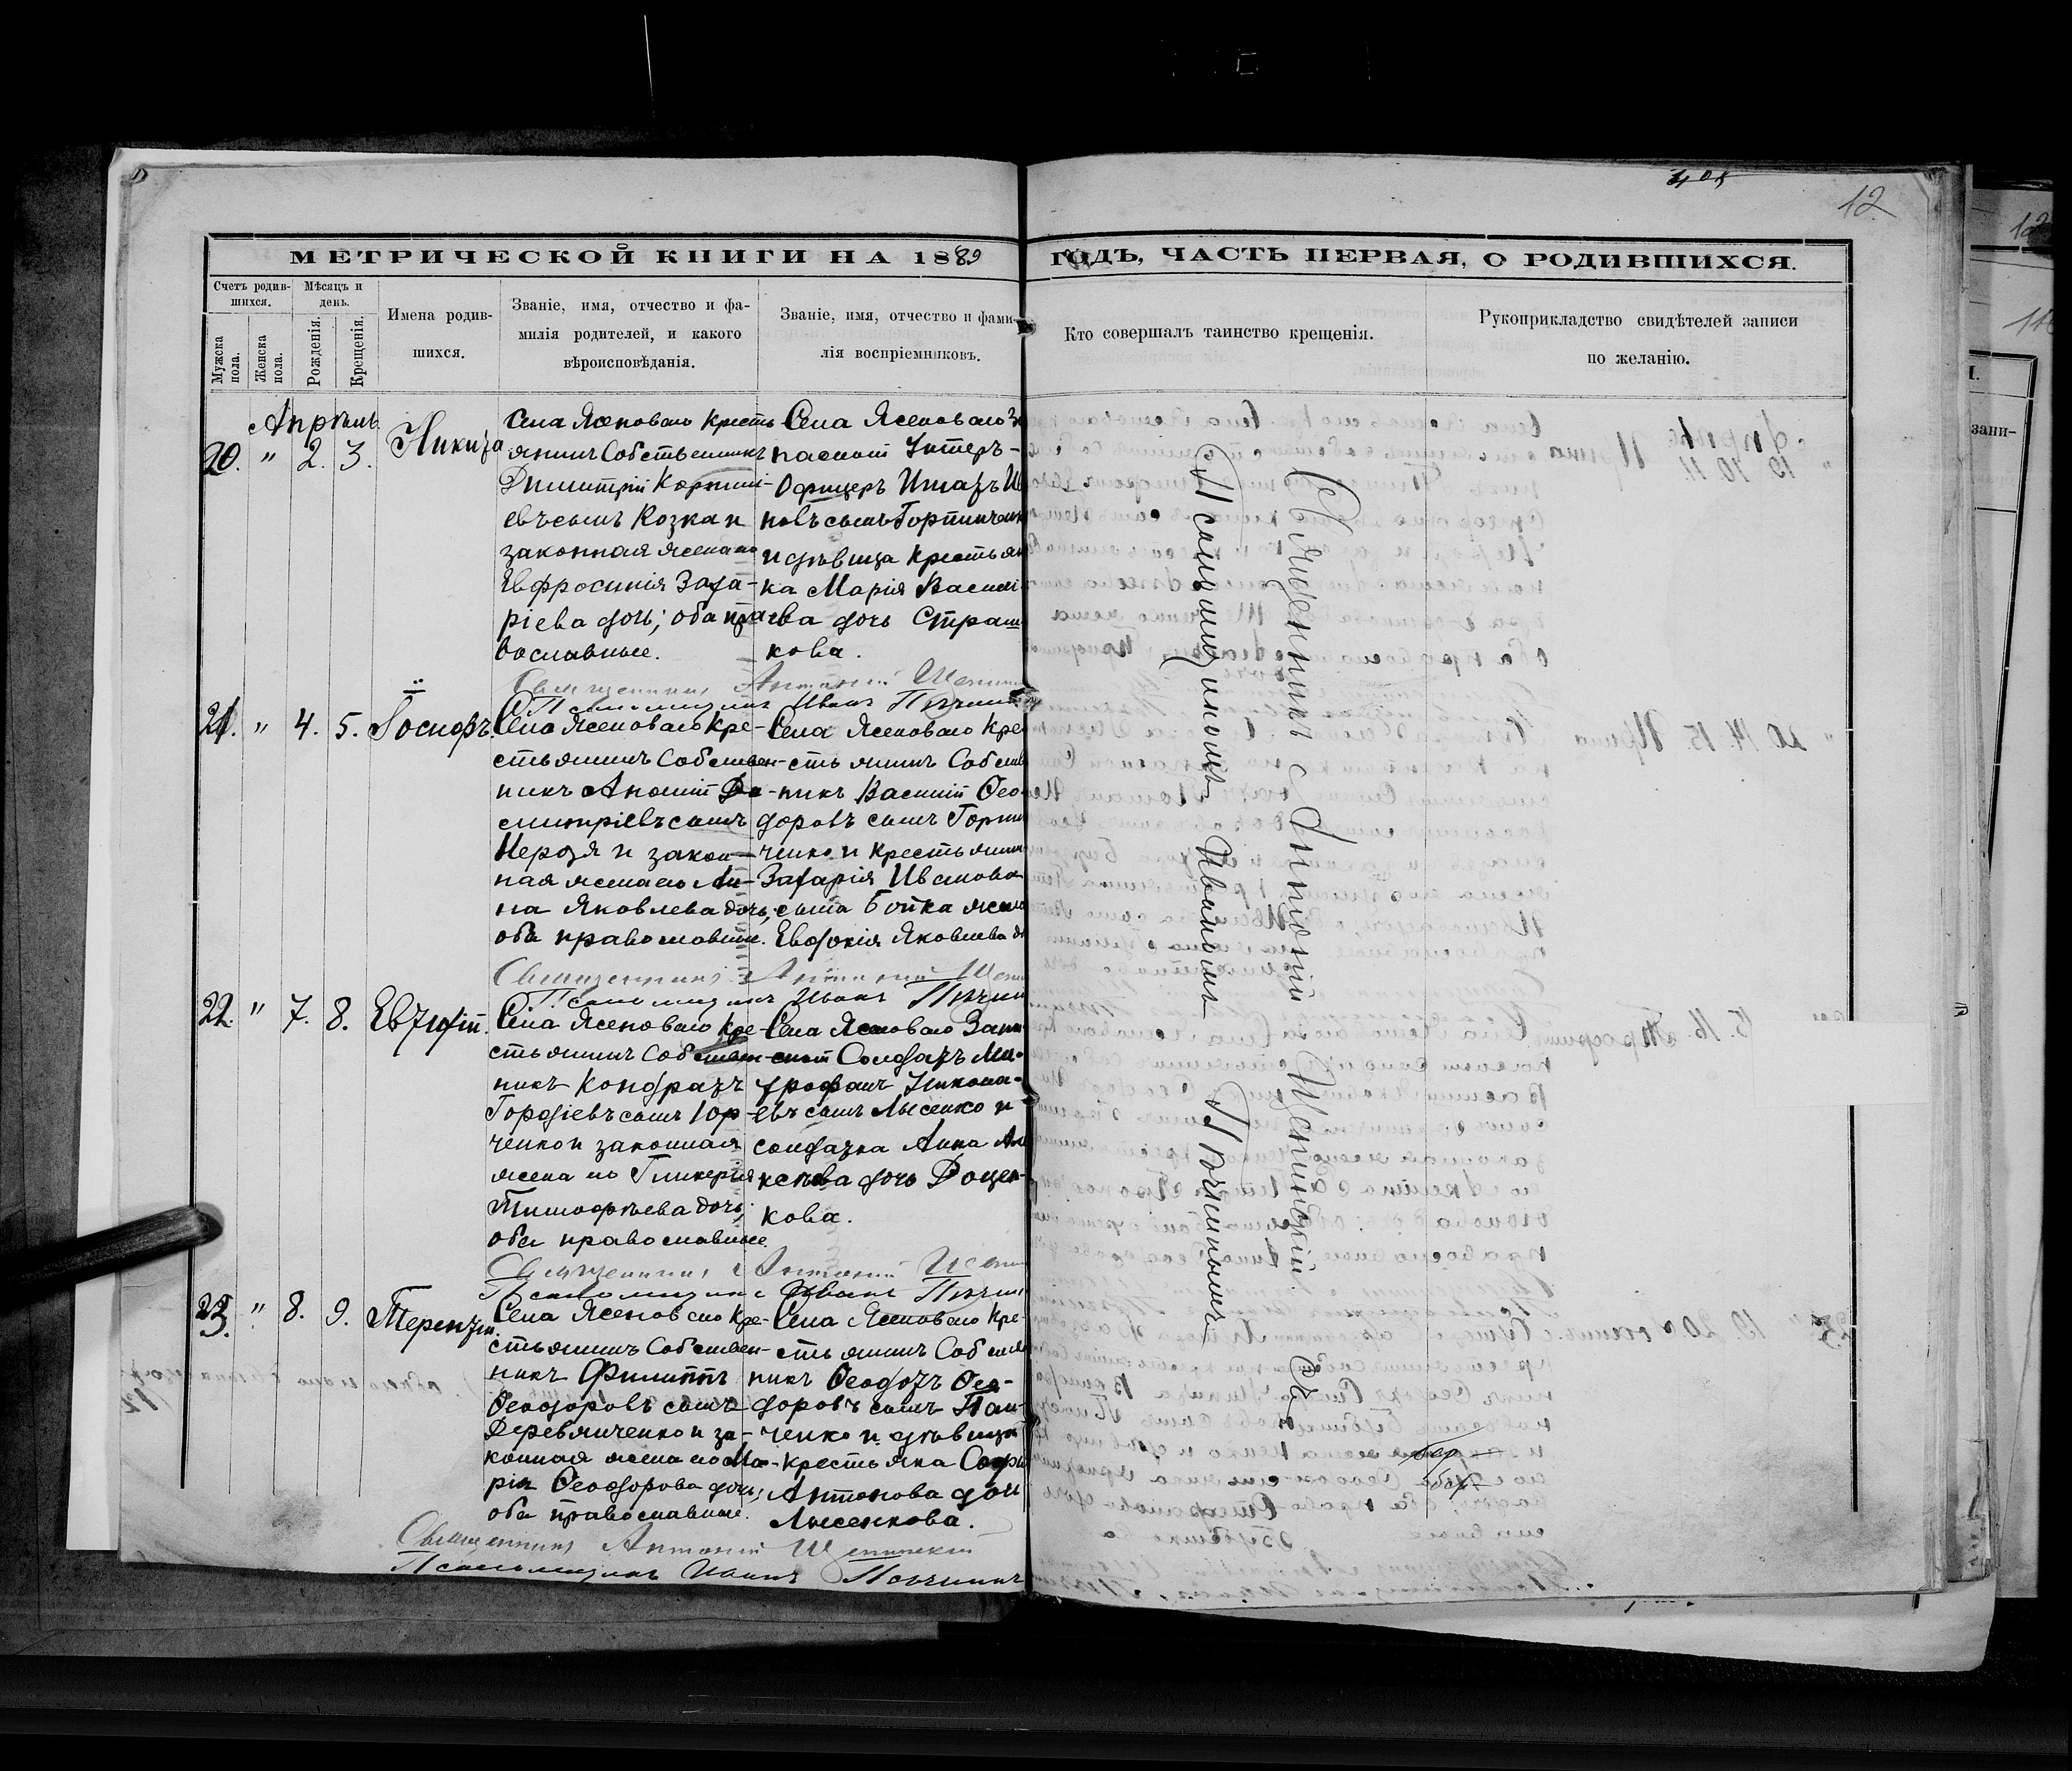 12.
МЕТРИЧЕСКОЙ КНИГИ НА 1889 ГОДЪ, ЧАСТЬ ПЕРВАЯ, О РОДИВШИХСЯ.
Счетъ родив-
шихся.
Мужска
пола.
Женска
пола.
Мѣсяцъ и
день.
Рожденія.
Крещенія.
Имена родив-
шихся.
Званіе, имя, отчество и фа-
милія родителей, и какого
вѣроисповѣданія.
Званіе, имя, отчество и фами-
лія воспріемниковъ.
Кто совершалъ таинство крещенія.
Рукоприкладство свидѣтелей записи
по желанію.
Апрѣль
20. " 2. 3. Никита
Села Ясеноваго кресть
янинъ Собственникъ
Димитрій
евъ сынъ Козка и
законная жена его
Евфросинія Заха-
ріева дочь; оба пра
вославные.
Села Ясеноваго За
пасной Унтеръ-
Офицеръ Игнатъ Ив
новъ сынъ Горпинченк
и дѣвица крестьян
ка Марія Василі
ева дочь Страш
кова.
Священникъ Антоній
Псаломщикъ Иванъ
21. " 4. 5. Іосифъ.
Села Ясеноваго Кре-
стьянинъ Собствен-
никъ
митріевъ сынъ
и закон-
ная жена его Ан-
на Яковлева дочь;
оба православные.
Села Ясеноваго Кре
стьянинъ Собств
никъ Василій Ѳео-
доровъ сынъ Горпин
ченко и крестьянин
Захарія Иванова
сына Бойка жена
Евдокія Яковлева д
Священникъ Антоній
Псаломщикъ Иванъ
22. " 7. 8. Евтихій.
Села Ясеноваго Кре-
стьянинъ Собствен-
никъ Кондратъ
Гордіевъ сынъ Юр-
ченко и законная
жена его Гликерія
Тимофѣева дочь;
оба православные.
Села Ясеноваго Запа
сной Солдатъ Ми-
трофанъ Никола-
евъ сынъ Лысенко и
солдатка Анна Але
ксѣева дочь Доцен-
кова.
Священникъ Антоній
Псаломщикъ Иванъ
23. " 8. 9. Терентій.
Села Ясеноваго Кре-
стьянинъ Собствен-
никъ Филиппъ
Ѳеодоровъ сынъ
Деревянченко и за-
конная жена его Ма-
рія Ѳеодорова дочь;
оба православные.
Села Ясеноваго Кре-
стьянинъ Собствен
никъ Ѳеодотъ Ѳео-
доровъ сынъ Пан-
ченко и дѣвица
крестьянка Софі
Антонова доч
Лысенкова.
Священникъ Антоній Щепинскій
Псаломщикъ Иванъ Пѣчкинъ
Священникъ Антоній Щепинскій съ
Псаломщикомъ Иваномъ Пѣчкинымъ